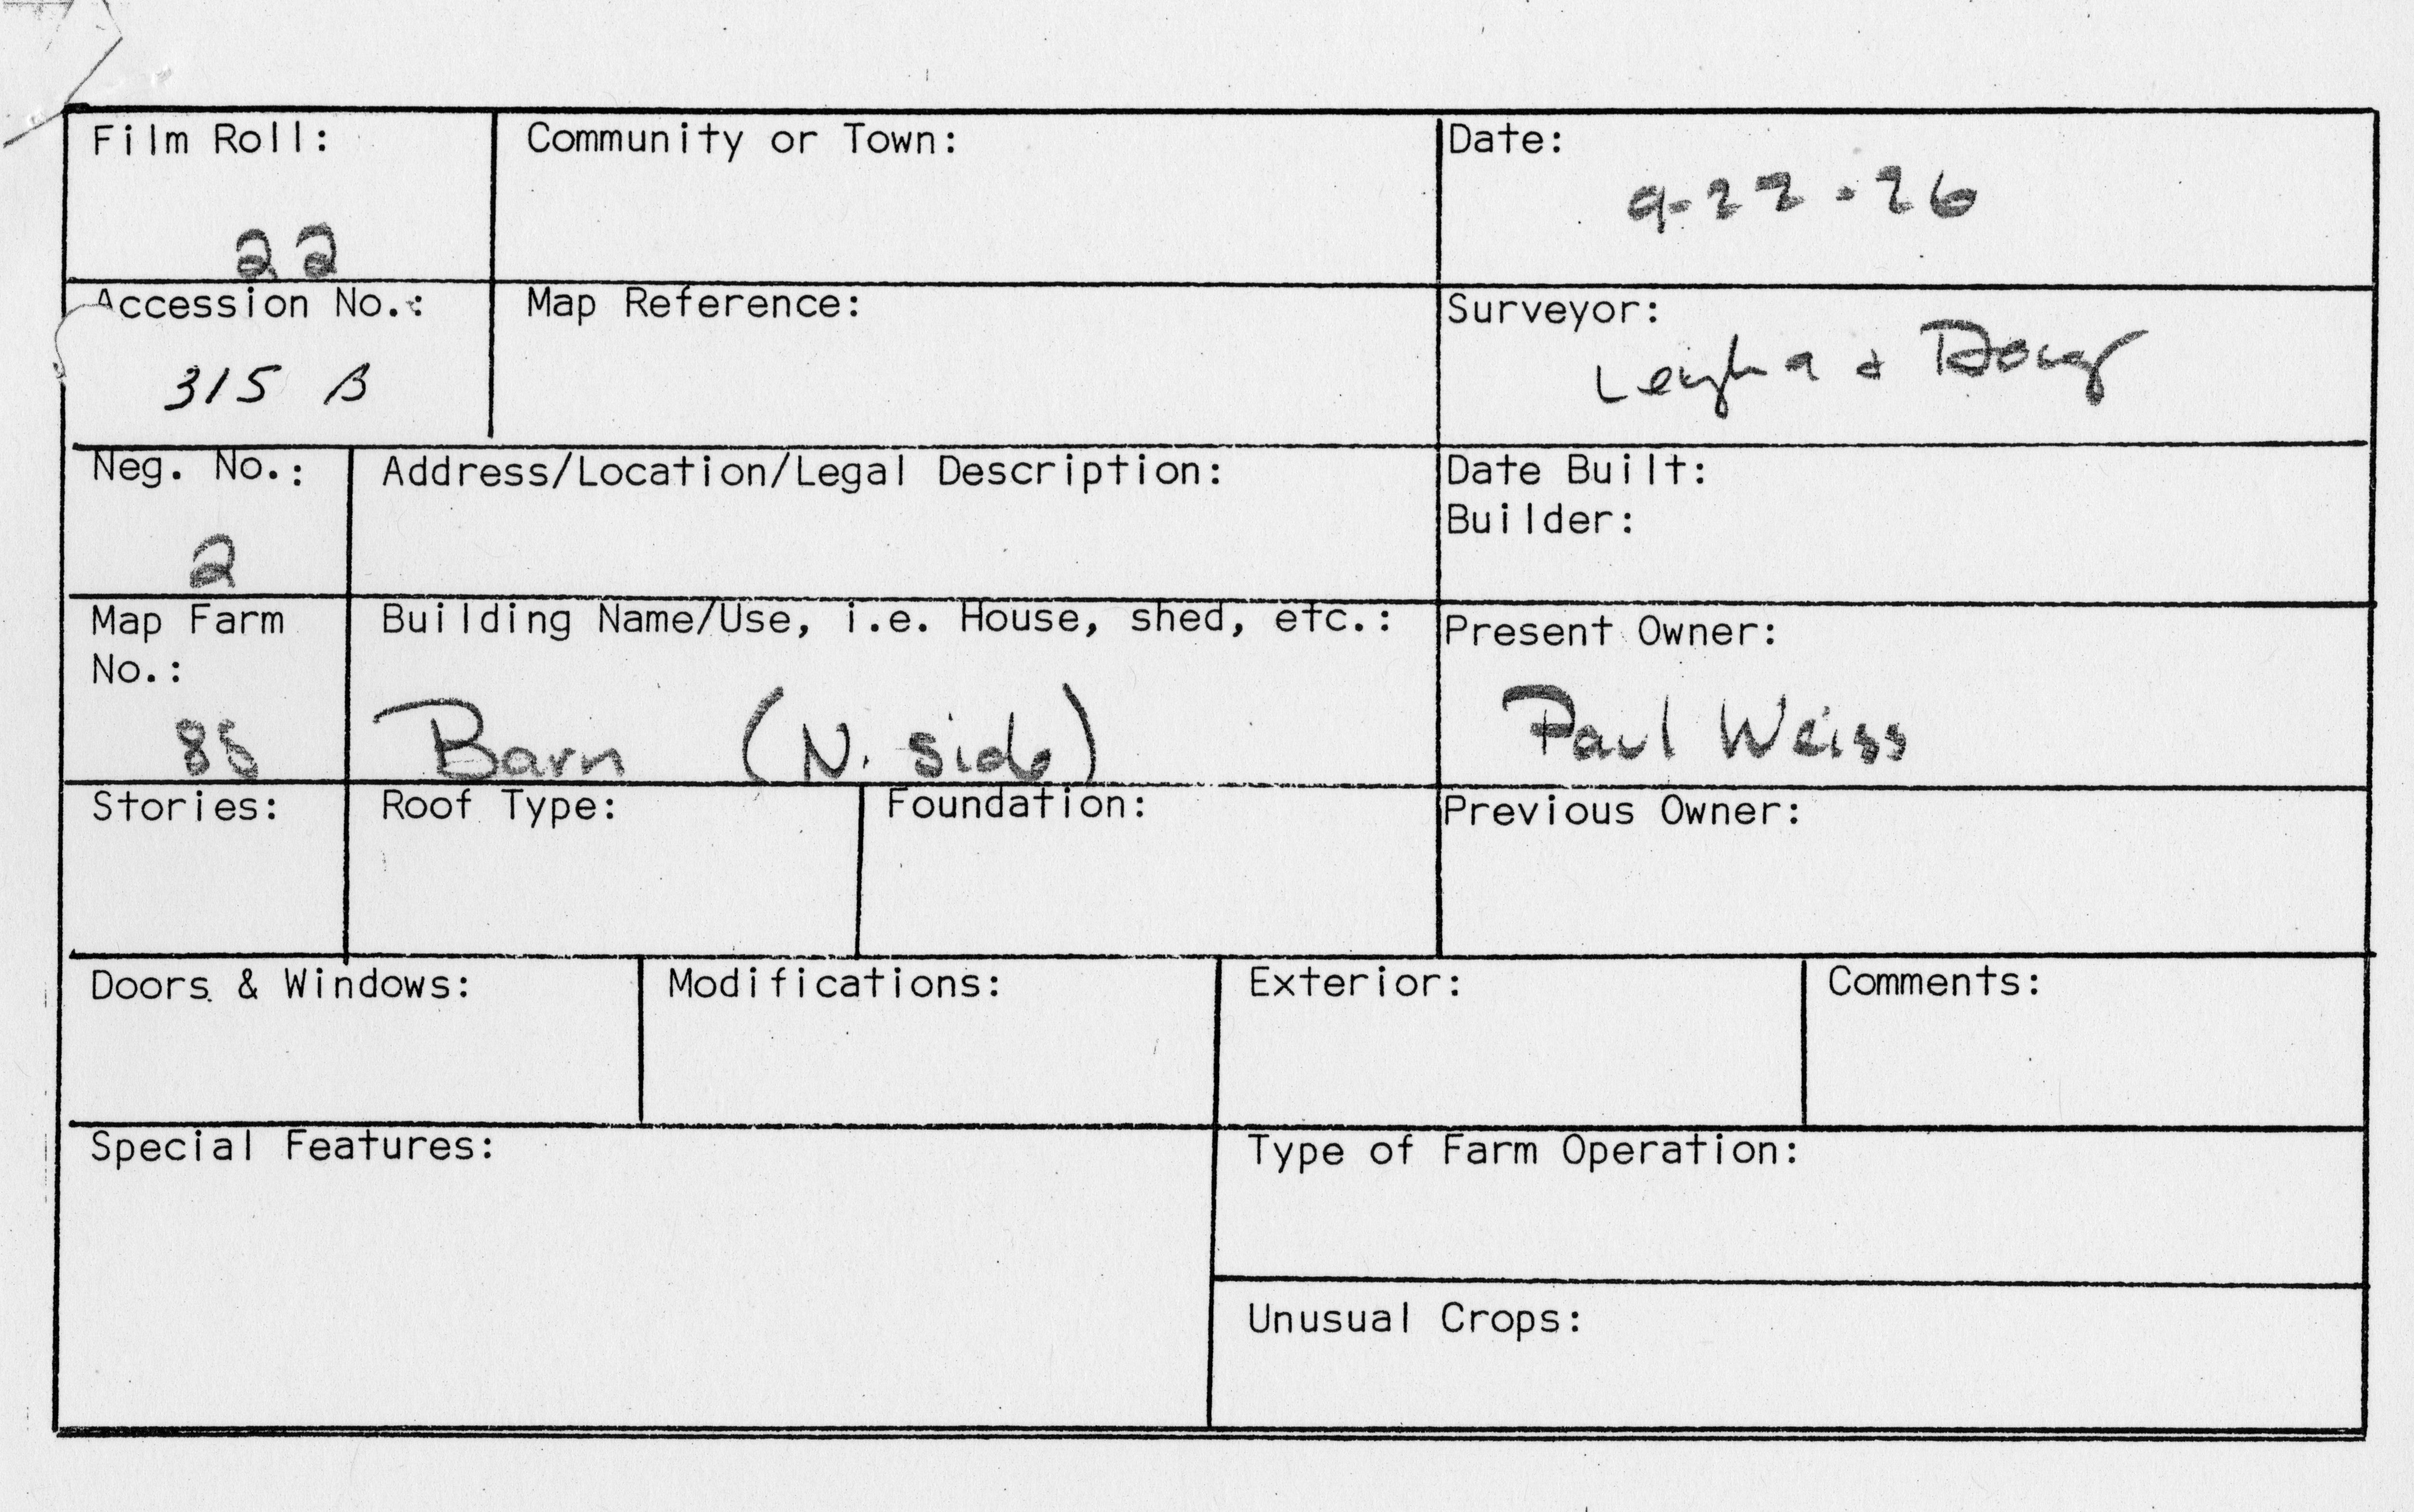 Film Roll:
22
Community or Town:
Date:
9-22-26
Accession No.:
315 B
Map Reference:
Surveyor:
Leigha + Doug
Neg. No.:
2
Address/Location/Legal Description:
Date Built:
Builder:
Map Farm
No.:
Building Name/Use, i.e. House, shed, etc.:
Barn (N. side)
Present Owner:
Paul Weiss
Stories:
Roof Type:
Foundation:
Previous Owner:
Doors & Windows:
Modifications:
Exterior:
Comments:
Special Features:
Type of Farm Operation:
Unusual Crops: